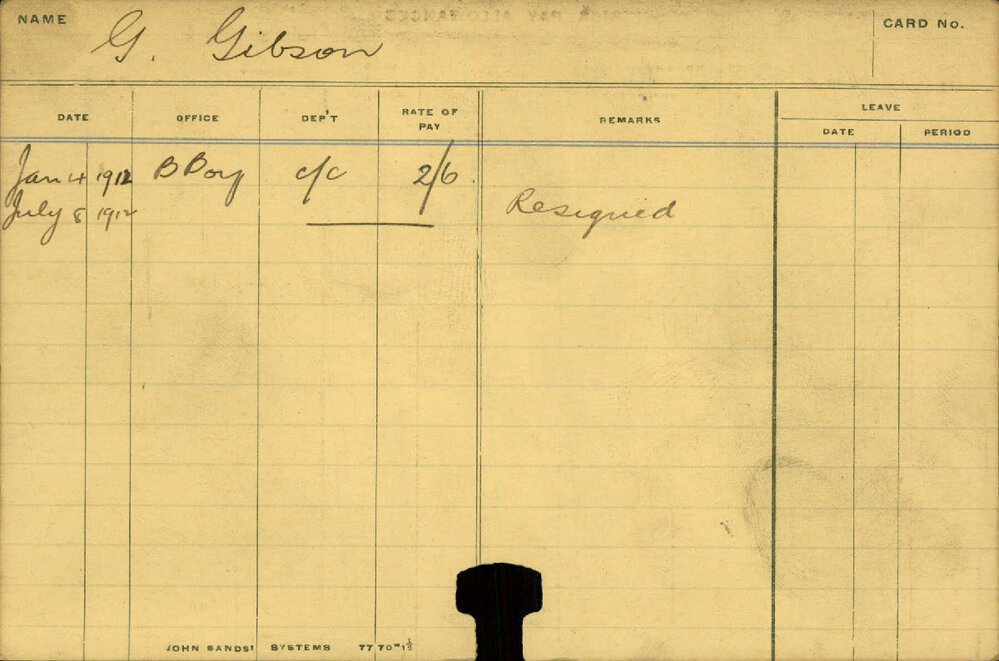 NAME G. Gibson CARD No.
DATE OFFICE DEP'T RATE OF PAY REMARKS LEAVE
DATE PERIOD
Jan 4 1912 B Boy c/c 2/6
July 8 1912 Resigned
JOHN SANDS' SYSTEMS 77 70